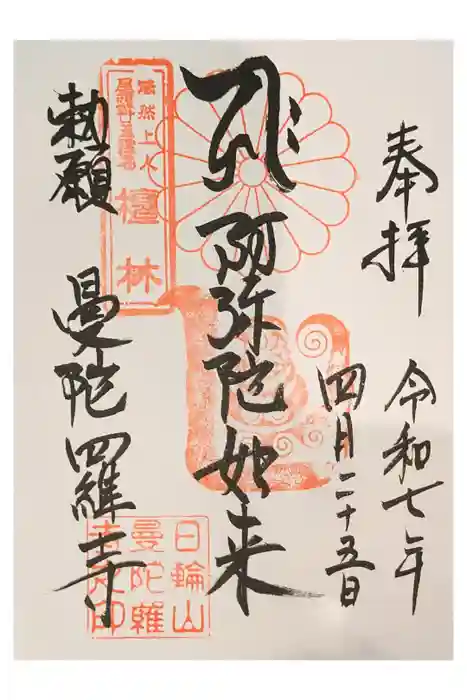 奉拝
令和七年
四月二十五日
阿弥陀如来
勅願
曼陀羅寺
法然上人
尾張廿五霊場
檀林
日輪山
曼陀羅
寺之印